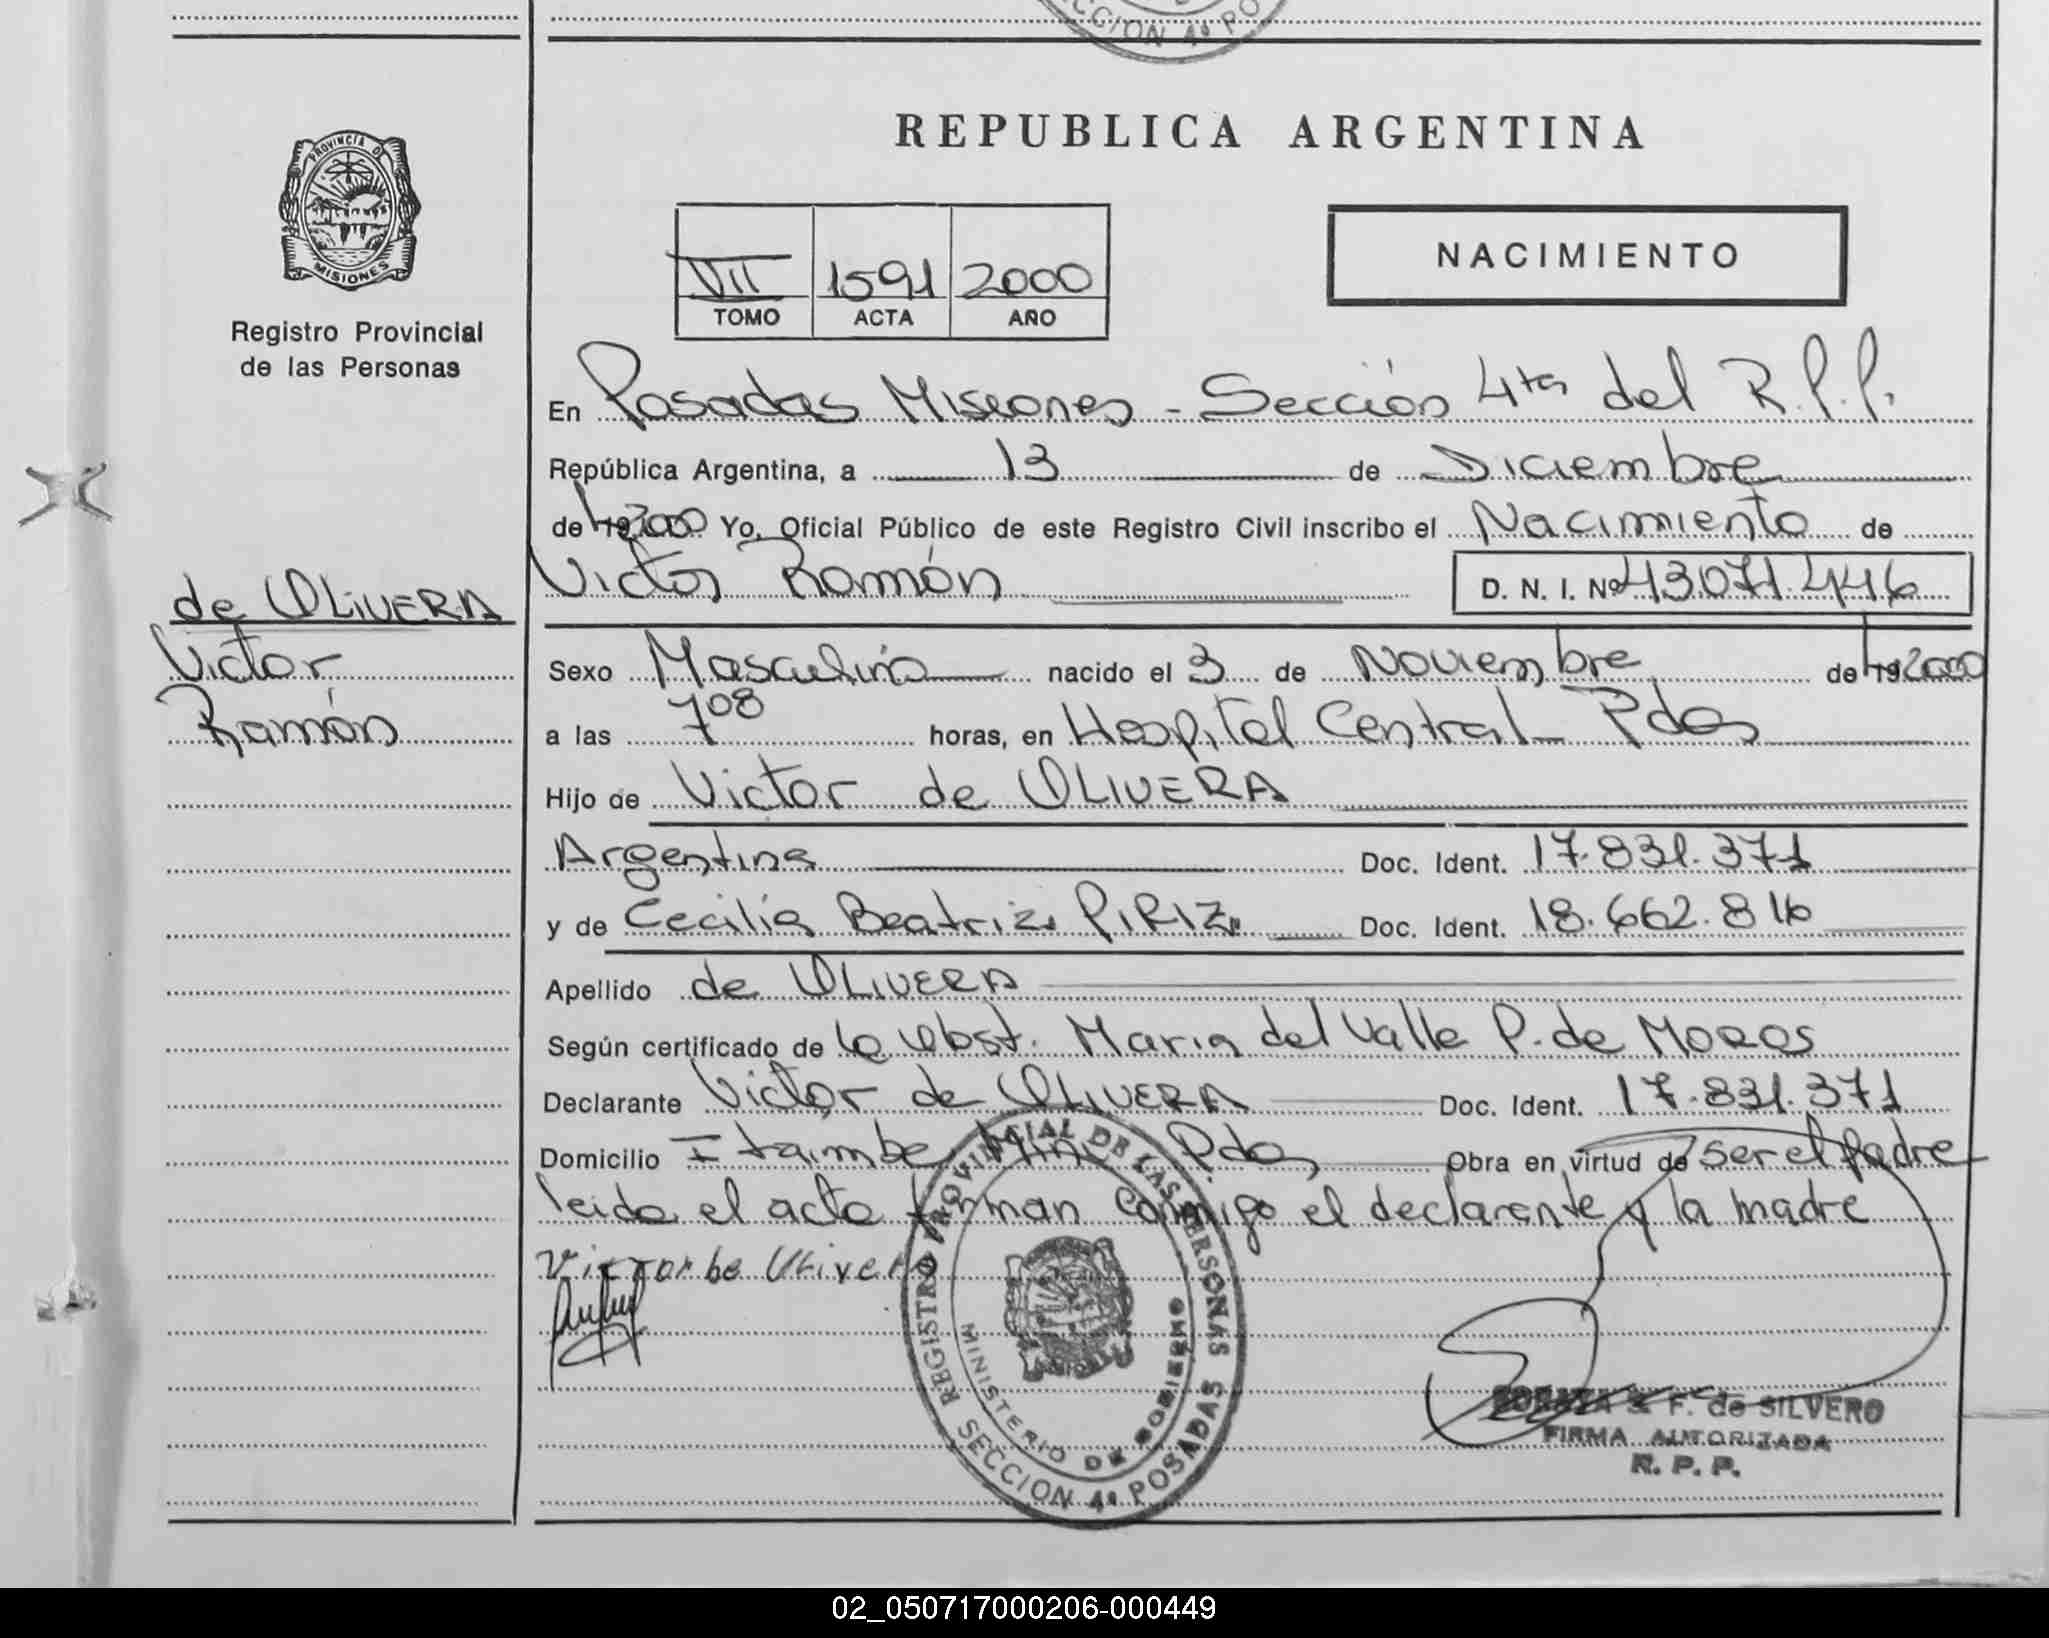 SECCION 4ª PO
REPUBLICA ARGENTINA
PROVINCIA DE
MISIONES
Registro Provincial
de las Personas
NACIMIENTO
VII 1591 2000
TOMO ACTA AÑO
En Posadas Misiones - Sección 4ta del R.P.P.
República Argentina, a 13 de Diciembre
de 19 2000 Yo, Oficial Público de este Registro Civil inscribo el Nacimiento de
Victor Ramón D. N. I. Nº 43.071.446
de OLIVERA
Victor
Ramón
Sexo Masculino nacido el 3 de Noviembre de 19 2000
a las 7 08 horas, en Hospital Central - Pdas
Hijo de Victor de OLIVERA
Argentina Doc. Ident. 17.831.371
y de Cecilia Beatriz PIRIZ Doc. Ident. 18.662.816
Apellido de OLIVERA
Según certificado de la Obst. Maria del Valle P. de MOROS
Declarante Victor de OLIVERA Doc. Ident. 17.831.371
Domicilio Itaimbe Mini Pdas Obra en virtud de ser el padre
leida el acta firman conmigo el declarante y la madre
Victor de Olivera
REGISTRO PROVINCIAL DE LAS PERSONAS
MINISTERIO DE GOBIERNO
SECCION 4ª POSADAS
F. de SILVERO
FIRMA AUTORIZADA
R. P. P.
02_050717000206-000449